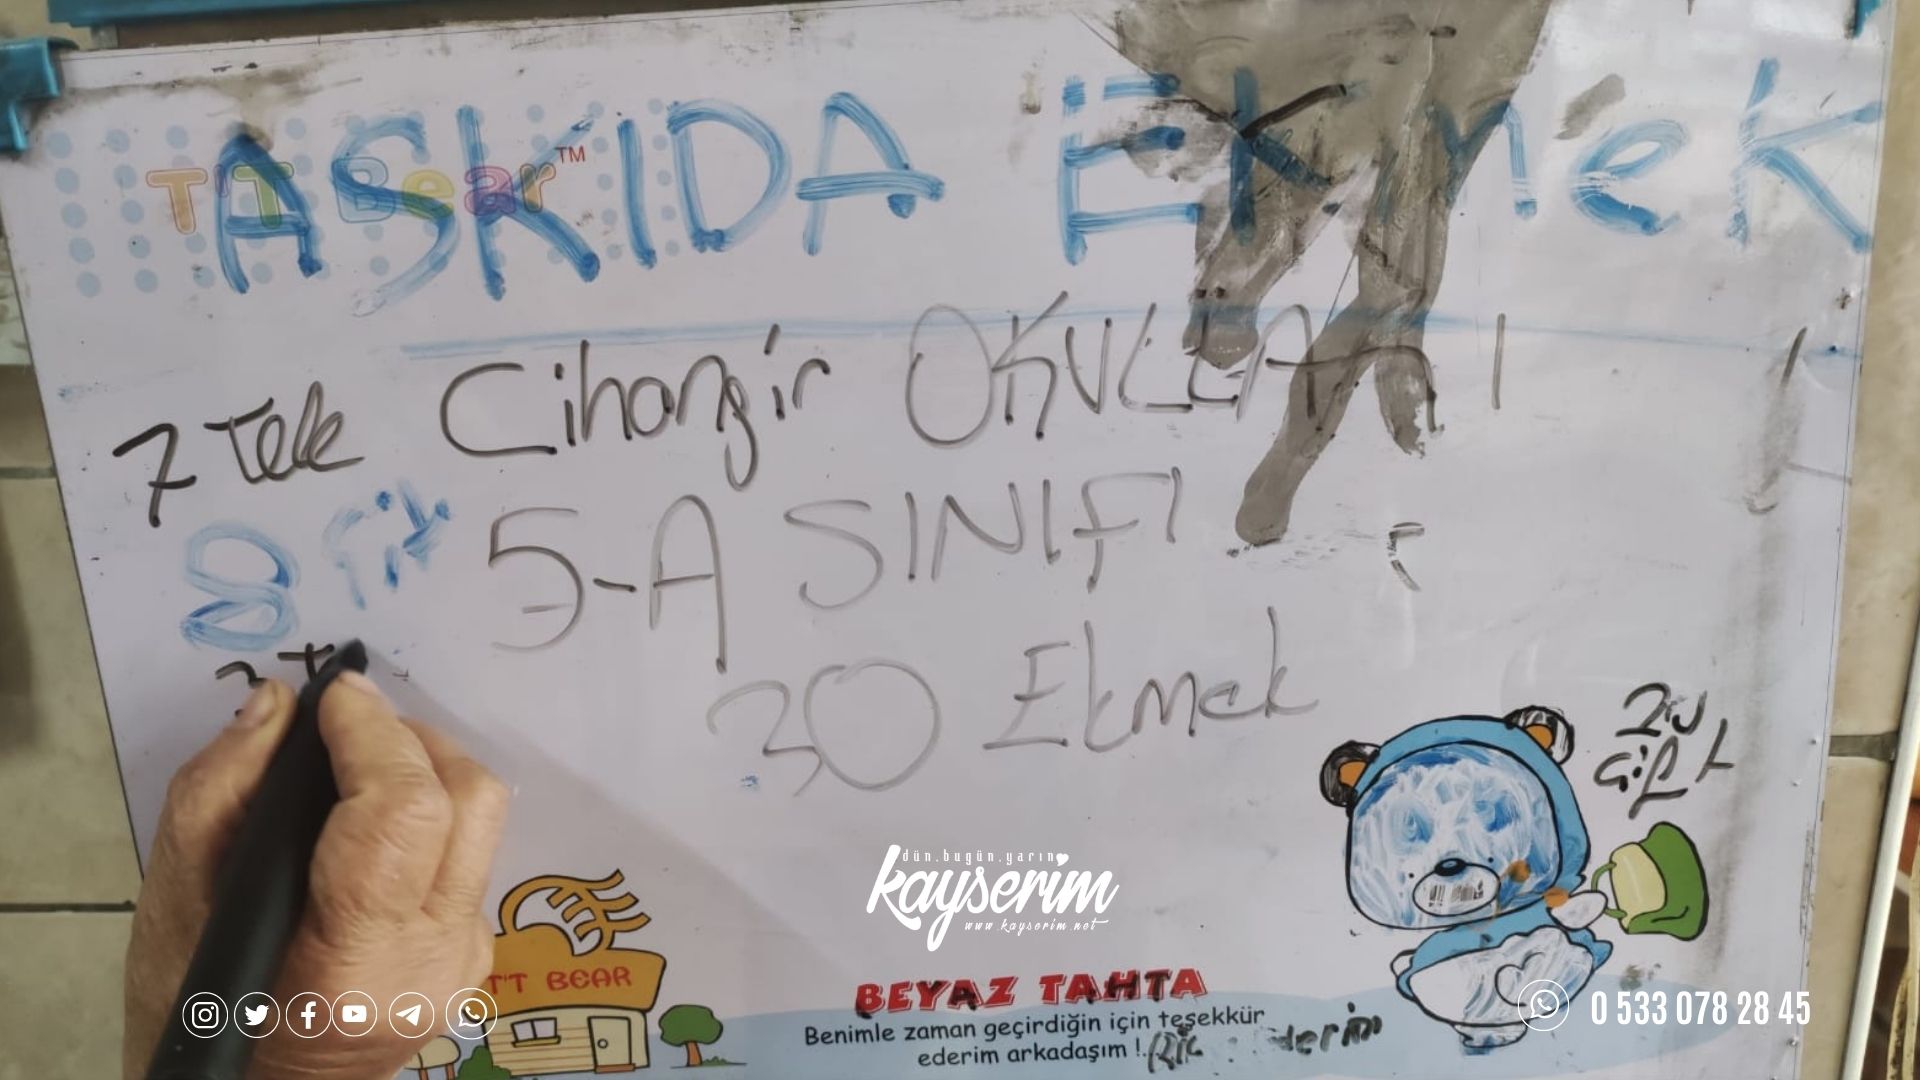 ASKIDA EKmeK
T'T Bear™
7 Tek Cihangir OKULLARI
8 Çift 5-A SINIFI
30 Ekmek
20
Çift
dün.bugün.yarın
kayserim
www.kayserim.net
T'T BEAR
BEYAZ TAHTA
Benimle zaman geçirdiğin için teşekkür
ederim arkadaşım !
0 533 078 28 45